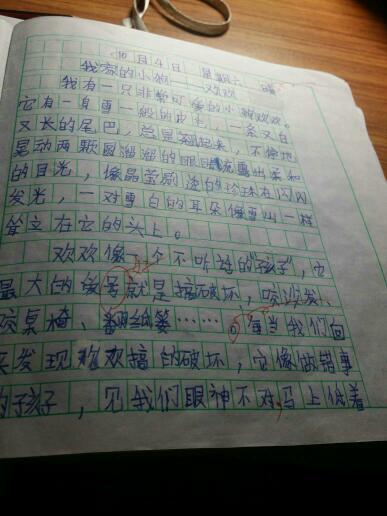 10月4日 星期六 晴
我家的小狗——欢欢
我有一只非常可爱的小狗欢欢。
它有一身雪一般的皮毛，一条又白
又长的尾巴，总是翘起来，不停地
晃动两颗圆溜溜的眼睛露出柔和
的目光，像晶莹剔透的珍珠在闪闪
发光，一对雪白的耳朵像雪山一样
耸立在它的头上。
欢欢像一个不听话的"孩子"，它
最大的爱好就是搞破坏，咬沙发、
咬桌椅、翻纸篓……每当我们回
来发现欢欢搞的破坏，它像做错事
的孩子，见我们眼神不对，马上低着